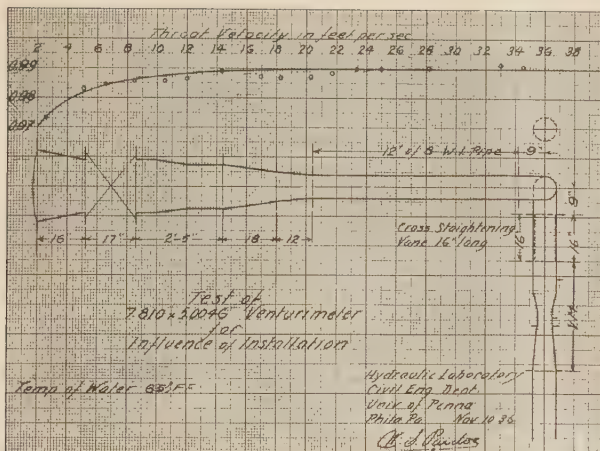 Throat Velocity in feet per sec
2 4 6 8 10 12 14 16 18 20 22 24 26 28 30 32 34 36 38
0.99
0.98
0.97
12' of 8" W.I. Pipe 9"
9"
16"
16"
V.M.
Cross Staightening
Vane 16" long
16" 17" 2'-5" 18" 12"
Test of
7.810 x 5.0046 Venturimeter
for
Influence of Installation
Temp of Water 65°F
Hydraulic Laboratory
Civil Eng. Dept.
Univ of Penna
Phila Pa Nov 10 36